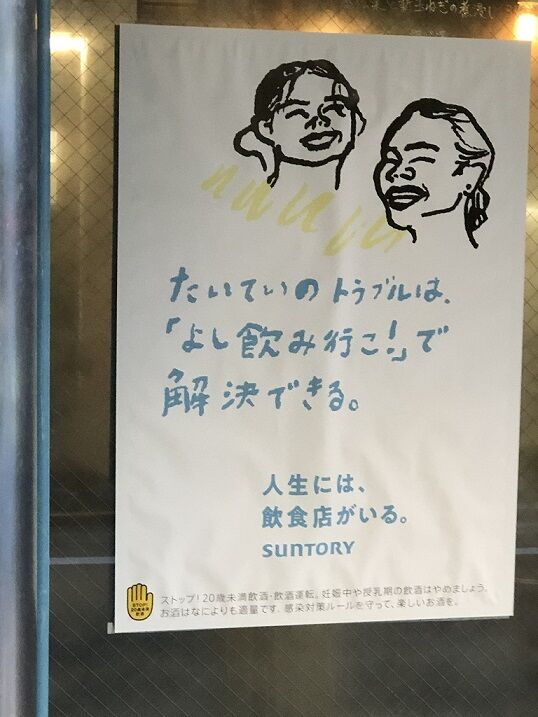 たいていのトラブルは、
「よし飲み行こ!」で
解決できる。
人生には、
飲食店がいる。
SUNTORY
STOP!
20歳未満
飲酒
ストップ!20歳未満飲酒・飲酒運転。妊娠中や授乳期の飲酒はやめましょう。
お酒はなによりも適量です。感染対策ルールを守って、楽しいお酒を。